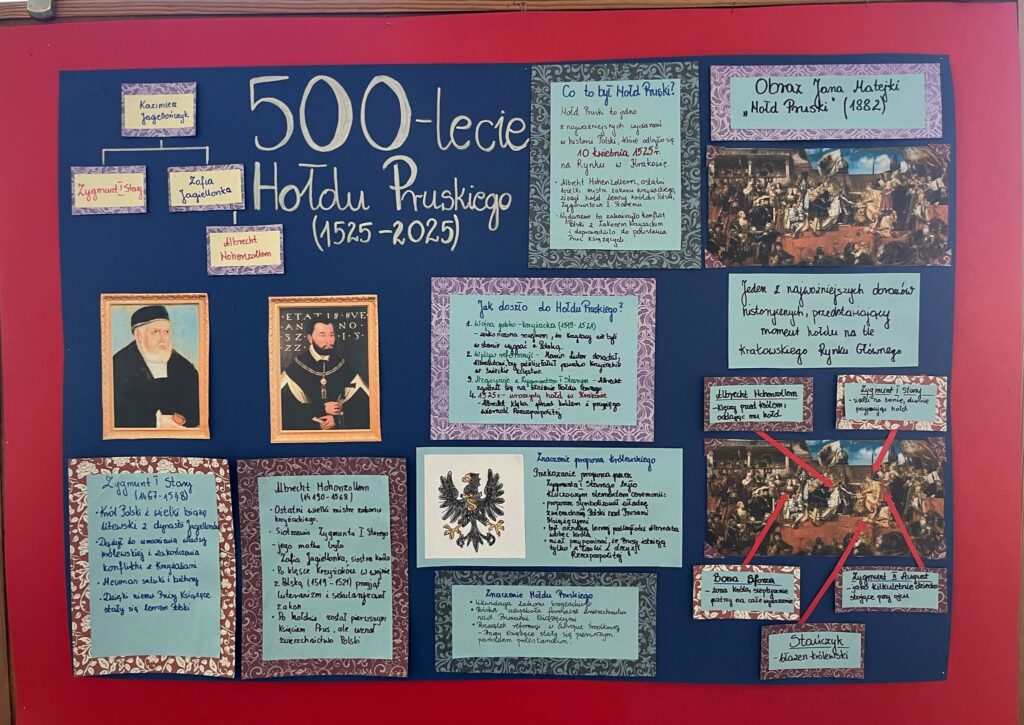 Kazimierz
Jagiellończyk
Zygmunt I Stary
Zofia
Jagiellonka
Albrecht
Hohenzollern
500-lecie
Hołdu Pruskiego
(1525-2025)
Co to był Hołd Pruski?
Hołd Pruski to jedno
z najważniejszych wydarzeń
w historii Polski, które odbyło się
10 kwietnia 1525 r.
na Rynku w Krakowie.
• Albrecht Hohenzollern, ostatni
wielki mistrz zakonu krzyżackiego,
złożył hołd lenny królowi Polski,
Zygmuntowi I Staremu
• Wydarzenie to zakończyło konflikt
Polski z Zakonem Krzyżackim
i doprowadziło do powstania
Prus Książęcych.
Obraz Jana Matejki
"Hołd Pruski" (1882)
Jeden z najważniejszych obrazów
historycznych, przedstawiający
moment hołdu na tle
Krakowskiego Rynku Głównego
ETATI 8 8 VE
AN NO
Jak doszło do Hołdu Pruskiego?
1. Wojna polsko-krzyżacka (1519-1521)
- zakończona rozejmem, bo Krzyżacy nie byli
w stanie wygrać z Polską.
2. Wpływ reformacji - Marcin Luter doradzał
Albrechtowi, by przekształcił państwo krzyżackie
w świeckie księstwo.
3. Negocjacje z Zygmuntem I Starym - Albrecht
zgodził się na złożenie hołdu lennego
4. 1525 r. - uroczysty hołd w Krakowie
- Albrecht klęka przed królem i przysięga
wierność Rzeczpospolitej
Albrecht Hohenzollern
- klęczy przed królem,
oddając mu hołd
Zygmunt I Stary
- siedzi na tronie, dumnie
przyjmując hołd
Bona Sforza
- żona króla, sceptycznie
patrzy na całe wydarzenie
Zygmunt II August
- jako kilkuletnie dziecko
stojące przy ojcu
Stańczyk
- błazen królewski
Zygmunt I Stary
(1467-1548)
• Król Polski i wielki książę
litewski z dynastii Jagiellonów
• Dążył do umocnienia władzy
królewskiej i zakończenia
konfliktu z Krzyżakami
• Mecenas sztuki i kultury
• Dzięki niemu Prusy Książęce
stały się lennem Polski
Albrecht Hohenzollern
(1490-1568)
• Ostatni wielki mistrz zakonu
krzyżackiego.
• Siostrzeniec Zygmunta I Starego
- jego matką była
Zofia Jagiellonka, siostra króla
• Po klęsce Krzyżaków w wojnie
z Polską (1519-1521) przyjął
luteranizm i sekularyzował
zakon
• Po hołdzie został pierwszym
księciem Prus, ale uznał
zwierzchnictwo Polski
Znaczenie proporca królewskiego
Przekazanie proporca przez
Zygmunta I Starego było
kluczowym elementem ceremonii:
• proporzec symbolizował władzę
zwierzchnią Polski nad Prusami
Książęcymi
• był oznaką lennej podległości Albrechta
wobec króla
• miał przypominać, że Prusy istnieją
tylko z łaski i decyzji
Rzeczpospolitej
Znaczenie Hołdu Pruskiego
• Likwidacja zakonu krzyżackiego
• Polska uzyskała formalne zwierzchnictwo
nad Prusami Książęcymi
• Początek reformacji w Europie Środkowej
- Prusy Książęce stały się pierwszym
państwem protestanckim.